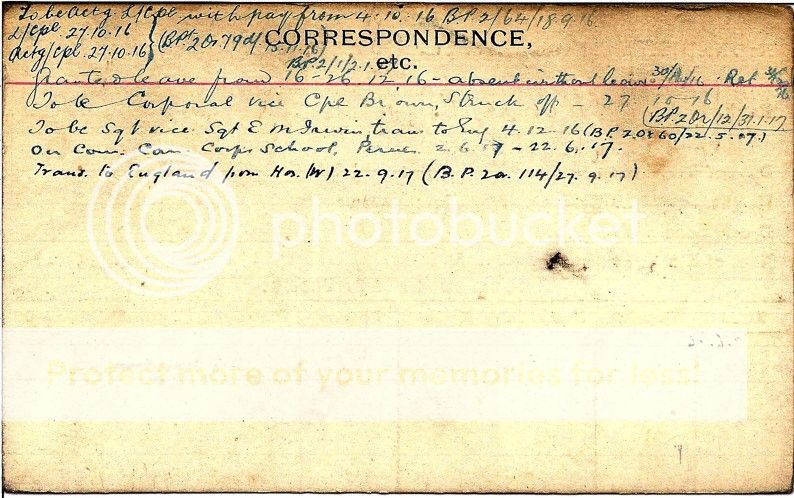 To be Actg L/Cpl with pay from 4.10.16 BP2/64/18.9.16
L/Cpl 27.10.16
Actg/Cpl. 27.10.16
CORRESPONDENCE,
etc.
Granted leave from 16-26 12 16 - absent without leave
To be Corporal vice Cpl Brown, Struck off - 27 10 16
(B.P.2Or/12/31.1.17
To be Sgt vice Sgt E M Irwin, trans to Eng 4.12.16 (B.P.2.Or 60/22.5.17.)
On Com. Can. Corps School, 2.6.17 - 22.6.17.
Trans. to England from Hos. (W) 22.9.17 (B.P. 2or. 114/27.9.17)
photobucket
Protect more of your memories for less!